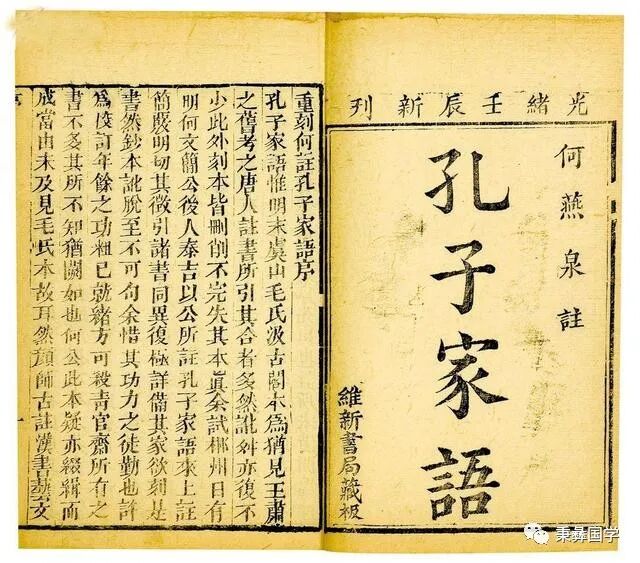 光緒壬辰新刊
何燕泉註
孔子家語
維新書局藏板
重刻何註孔子家語序
孔子家語惟明末虞山毛氏汲古閣本爲猶見王肅
之舊考之唐人註書所引其合者多然訛舛亦復不
少此外刻本皆刪削不完失其本眞余試郴州日有
明何文簡公後人泰吉以公所註孔子家語來上註
簡嚴明切其徵引諸書同異復極詳備其家欲刻是
書然鈔本訛脫至不可句余惜其功力之徒勤也許
爲挍訂年餘之功粗已就緒方可殺靑官齋所有之
書不多其所不知猶闕如也何公此本疑亦綴緝而
成當由未及見毛氏本故耳然顏師古註漢書藝文
序
一
秉彝国学